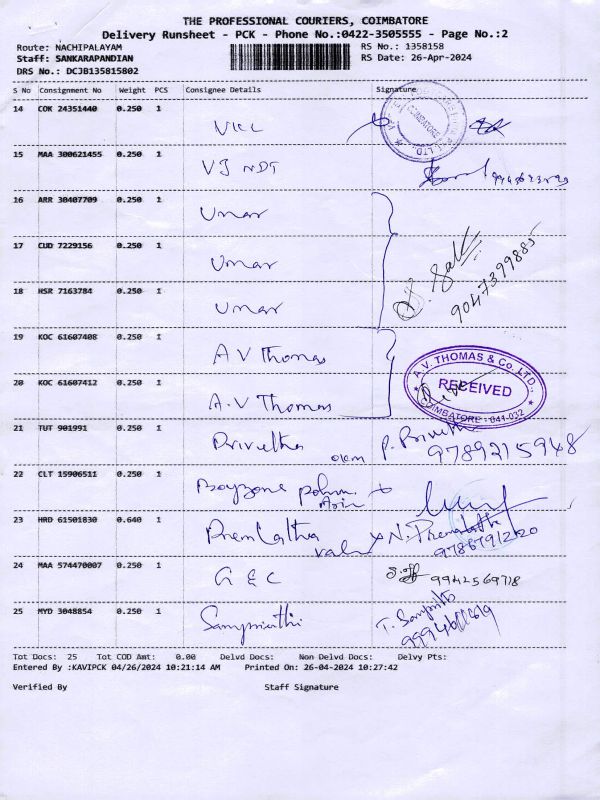 THE PROFESSIONAL COURIERS, COIMBATORE
Delivery Runsheet - PCK - Phone No.:0422-3505555 - Page No.:2
Route: NACHIPALAYAM RS No.: 1358158
Staff: SANKARAPANDIAN RS Date: 26-Apr-2024
DRS No.: DCJB135815802
S No Consignment No Weight PCS Consignee Details Signature
14 COK 24351440 0.250 1
COIMBATORE
15 MAA 300621455 0.250 1 VJ NDT
16 ARR 30407709 0.250 1 Umar
17 CUD 7229156 0.250 1 Umar
9047399885
18 HSR 7163784 0.250 1 Umar
19 KOC 61607408 0.250 1 A V Thomas
A.V. THOMAS & Co. LTD.,
RECEIVED
COIMBATORE - 641-032
20 KOC 61607412 0.250 1 A.V Thomas
21 TUT 901991 0.250 1 Privetha P. Privetha
9789215948
22 CLT 15906511 0.250 1 Boyzone
23 HRD 61501830 0.640 1 Premlatha N. Premalatha
24 MAA 574470007 0.250 1 G E C 9942569718
25 MYD 3048854 0.250 1
Tot Docs: 25 Tot COD Amt: 0.00 Delvd Docs: Non Delvd Docs: Delvy Pts:
Entered By :KAVIPCK 04/26/2024 10:21:14 AM Printed On: 26-04-2024 10:27:42
Verified By Staff Signature